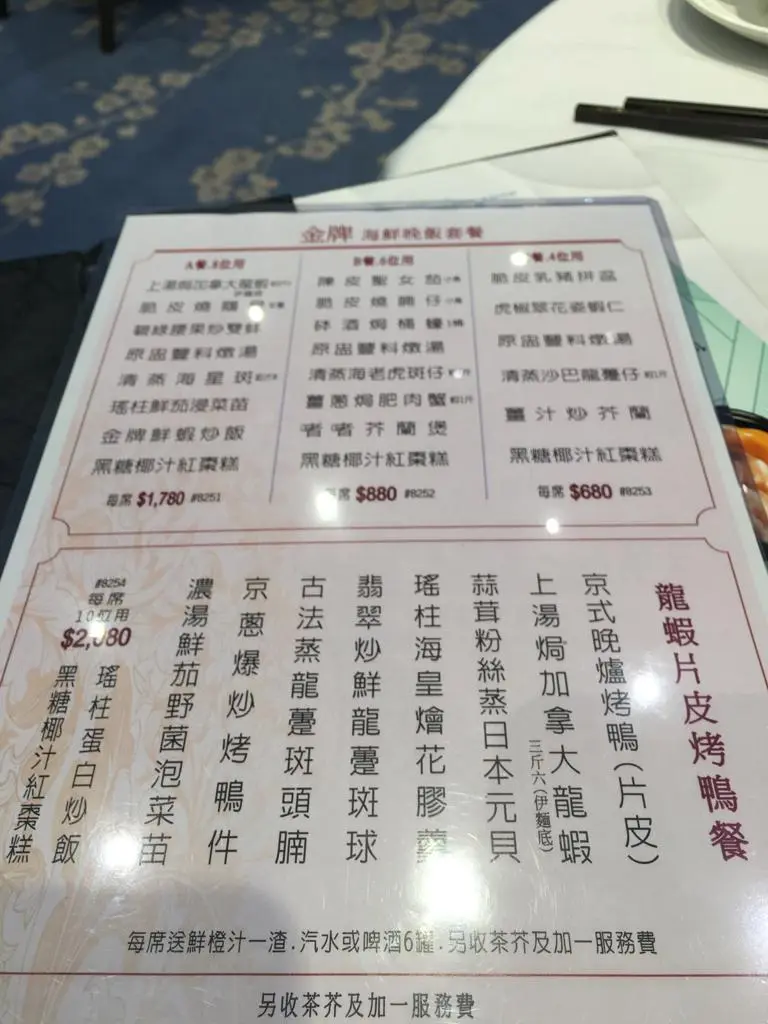 金牌 海鮮晚飯套餐
A餐.8位用
上湯焗加拿大龍蝦
脆皮燒
碧綠腰果炒雙鮮
原盅豐料燉湯
清蒸海星斑
瑤柱鮮茄浸菜苗
金牌鮮蝦炒飯
黑糖椰汁紅棗糕
每席 $1,780 #8251
B餐.6位用
陳皮聖女茄
脆皮燒
砵酒焗桶蠔
原盅豐料燉湯
清蒸海老虎斑仔
薑蔥焗肥肉蟹
者者芥蘭煲
黑糖椰汁紅棗糕
每席 $880 #8252
餐.4位用
脆皮乳豬拼盆
虎椒翠花姿蝦仁
原盅豐料燉湯
清蒸沙巴龍躉仔
薑汁炒芥蘭
黑糖椰汁紅棗糕
每席 $680 #8253
龍蝦片皮烤鴨餐
京式晚爐烤鴨(片皮)
上湯焗加拿大龍蝦
三斤六(伊麵底)
蒜茸粉絲蒸日本元貝
瑤柱海皇燴花膠羹
翡翠炒鮮龍躉斑球
古法蒸龍躉斑頭腩
京蔥爆炒烤鴨件
濃湯鮮茄野菌泡菜苗
瑤柱蛋白炒飯
黑糖椰汁紅棗糕
#8254
每席
10位用
$2,080
每席送鮮橙汁一渣.汽水或啤酒6罐.另收茶芥及加一服務費
另收茶芥及加一服務費